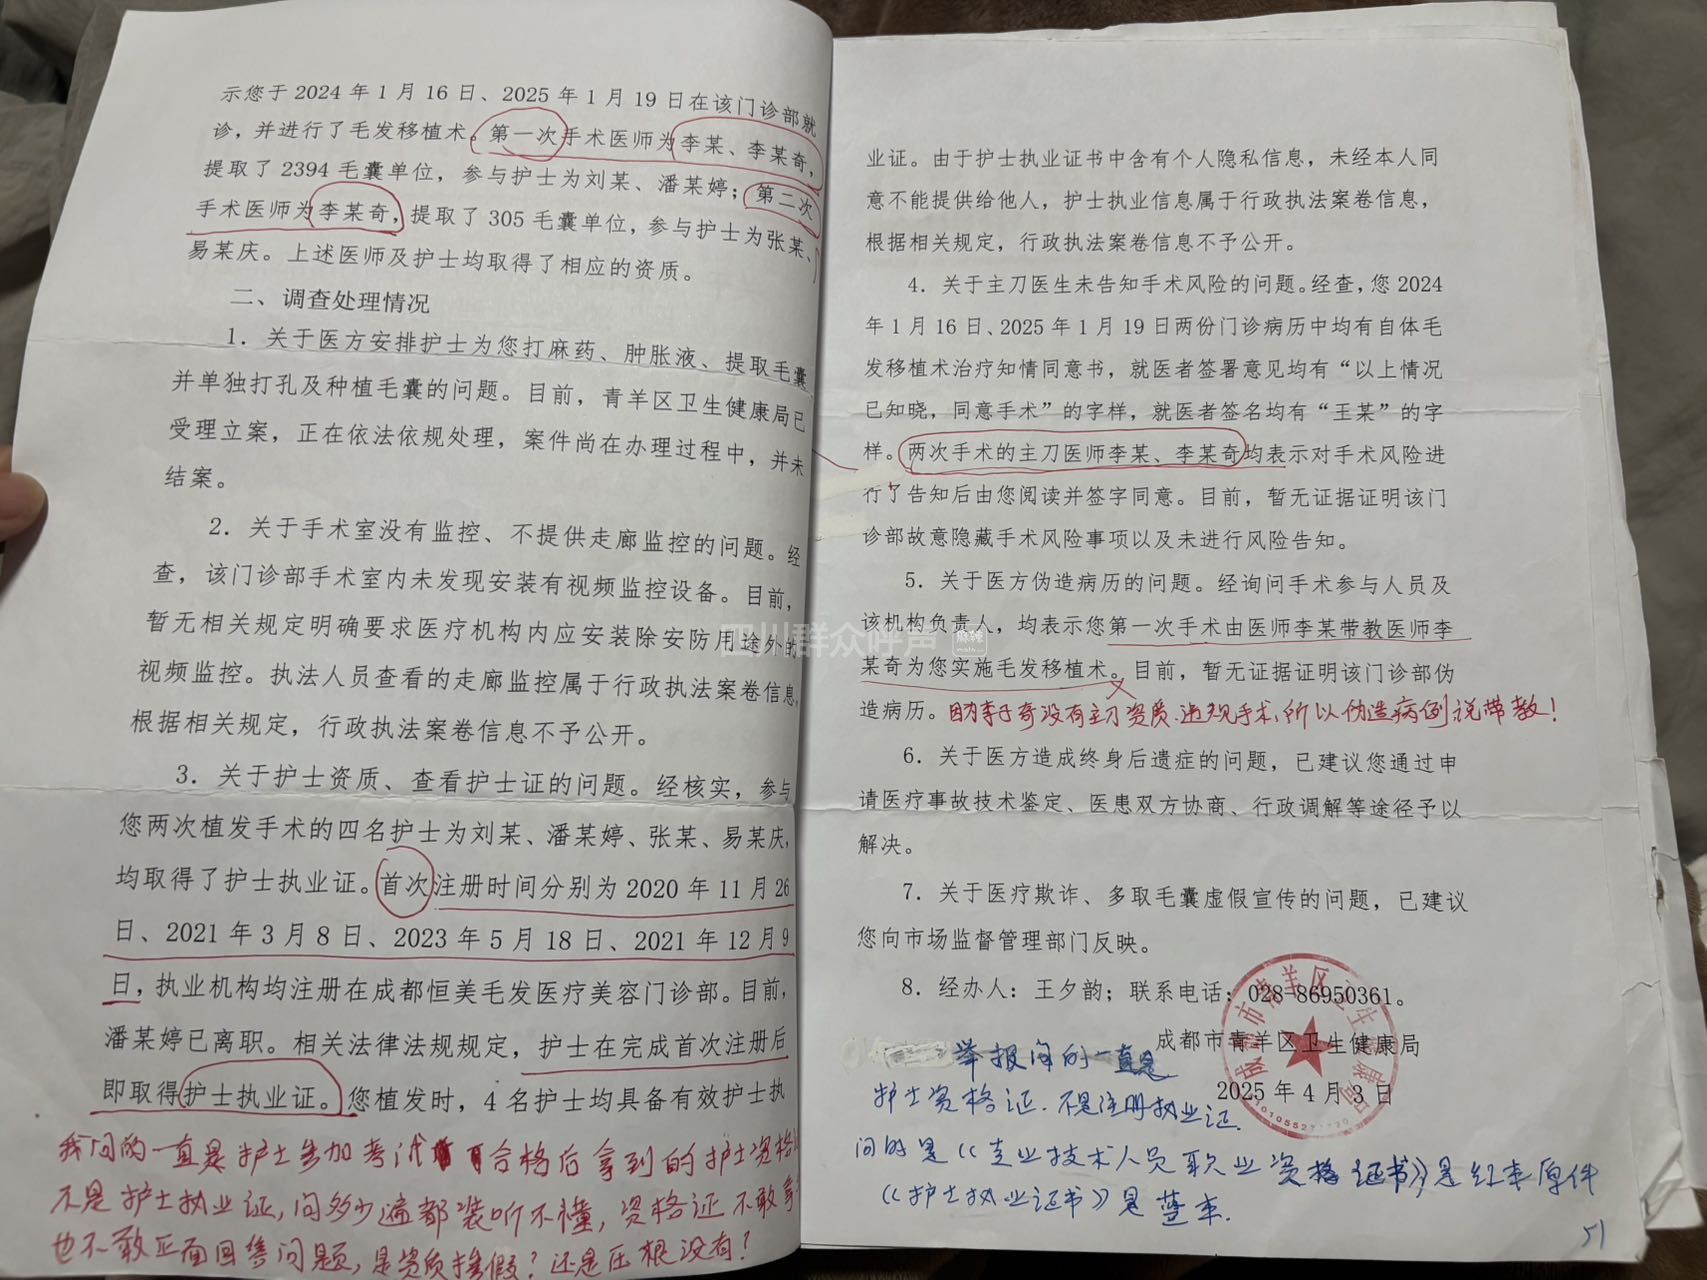 示您于2024年1月16日、2025年1月19日在该门诊部就
诊，并进行了毛发移植术。第一次手术医师为李某、李某奇，
提取了2394毛囊单位，参与护士为刘某、潘某婷；第二次
手术医师为李某奇，提取了305毛囊单位，参与护士为张某、
易某庆。上述医师及护士均取得了相应的资质。
二、调查处理情况
1. 关于医方安排护士为您打麻药、肿胀液、提取毛囊
并单独打孔及种植毛囊的问题。目前，青羊区卫生健康局已
受理立案，正在依法依规处理，案件尚在办理过程中，并未
结案。
2. 关于手术室没有监控、不提供走廊监控的问题。经
查，该门诊部手术室内未发现安装有视频监控设备。目前，
暂无相关规定明确要求医疗机构内应安装除安防用途外的
视频监控。执法人员查看的走廊监控属于行政执法案卷信息，
根据相关规定，行政执法案卷信息不予公开。
3. 关于护士资质、查看护士证的问题。经核实，参与
您两次植发手术的四名护士为刘某、潘某婷、张某、易某庆，
均取得了护士执业证。首次注册时间分别为2020年11月26
日、2021年3月8日、2023年5月18日、2021年12月9
日，执业机构均注册在成都恒美毛发医疗美容门诊部。目前，
潘某婷已离职。相关法律法规规定，护士在完成首次注册后
即取得护士执业证。您植发时，4名护士均具备有效护士执
我问的一直是护士参加考试合格后拿到的护士资格
不是护士执业证，问多少遍都装听不懂，资格证不敢拿
也不敢正面回答问题，是资质掺假？还是压根没有？
业证。由于护士执业证书中含有个人隐私信息，未经本人同
意不能提供给他人，护士执业信息属于行政执法案卷信息，
根据相关规定，行政执法案卷信息不予公开。
4. 关于主刀医生未告知手术风险的问题。经查，您2024
年1月16日、2025年1月19日两份门诊病历中均有自体毛
发移植术治疗知情同意书，就医者签署意见均有“以上情况
已知晓，同意手术”的字样，就医者签名均有“王某”的字
样。两次手术的主刀医师李某、李某奇均表示对手术风险进
行了告知后由您阅读并签字同意。目前，暂无证据证明该门
诊部故意隐藏手术风险事项以及未进行风险告知。
5. 关于医方伪造病历的问题。经询问手术参与人员及
该机构负责人，均表示您第一次手术由医师李某带教医师李
某奇为您实施毛发移植术。目前，暂无证据证明该门诊部伪
造病历。因为李子奇没有主刀资质.违规手术,所以伪造病例说带教！
6. 关于医方造成终身后遗症的问题，已建议您通过申
请医疗事故技术鉴定、医患双方协商、行政调解等途径予以
解决。
7. 关于医疗欺诈、多取毛囊虚假宣传的问题，已建议
您向市场监督管理部门反映。
8. 经办人：王夕韵；联系电话：028-86950361。
成都市青羊区卫生健康局
2025年4月3日
举报问的一直是
护士资格证.不是注册执业证.
问的是《专业技术人员职业资格证书》是红本原件
《护士执业证书》是蓝本.
51
四川群众呼声